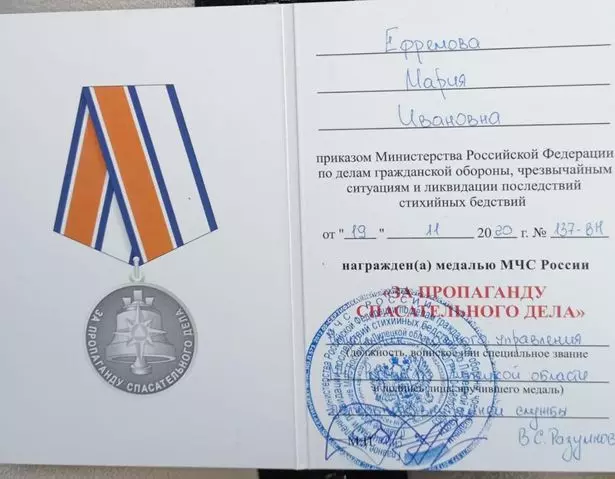 ЗА ПРОПАГАНДУ СПАСАТЕЛЬНОГО ДЕЛА
Ефремова
Мария
Ивановна
приказом Министерства Российской Федерации
по делам гражданской обороны, чрезвычайным
ситуациям и ликвидации последствий
стихийных бедствий
от "19" 11 2020 г. № 137-ВН
награжден(а) медалью МЧС России
«ЗА ПРОПАГАНДУ
СПАСАТЕЛЬНОГО ДЕЛА»
управления
(должность, воинское или специальное звание
области
и подпись лица, вручившего медаль)
службы
М.П.